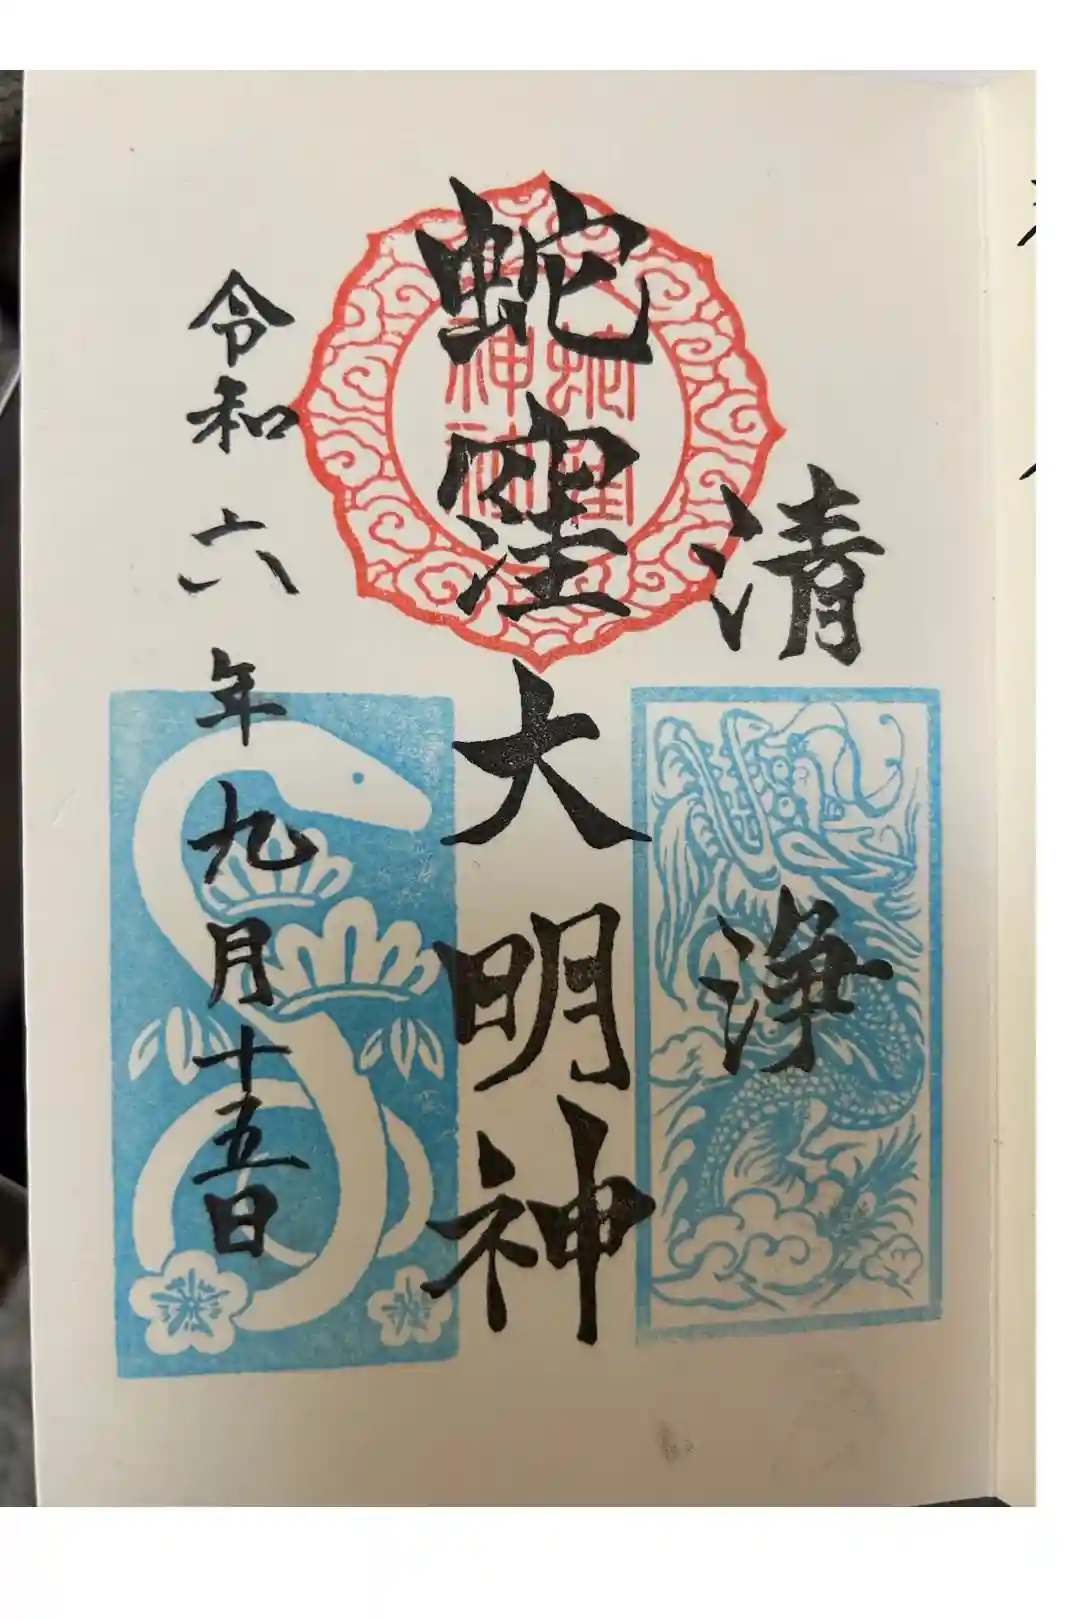 清浄
蛇窪大明神
蛇窪
神社
令和六年九月十五日